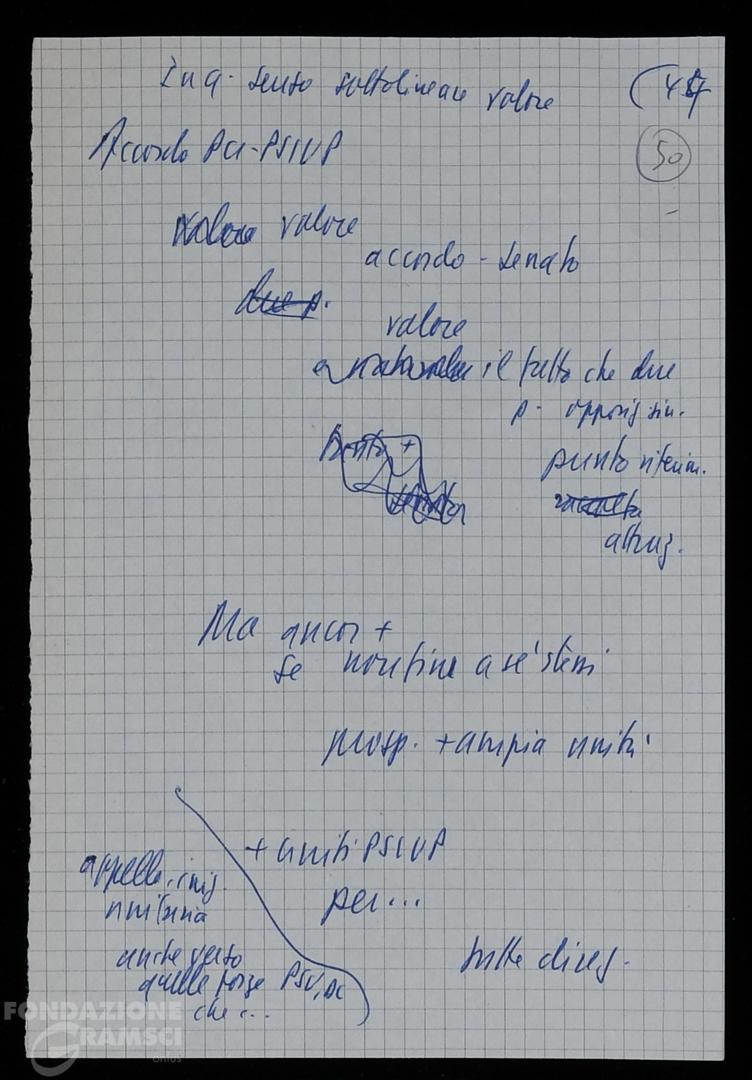 In q. senso sottolineare valore
(49
50
Accordo PCI-PSIUP
valore valore
accordo - senato
due p.
valore
il fatto che due
p. opposiz. sin.
punto riferim.
attraz.
Ma ancor +
se non fine a se' stessi
prosp. + ampia unità
+ uniti PSIUP
per...
appello, iniz.
unitaria
anche verso
quelle forze PSU, DC
che...
sulle direz.
FONDAZIONE
GRAMSCI
onlus